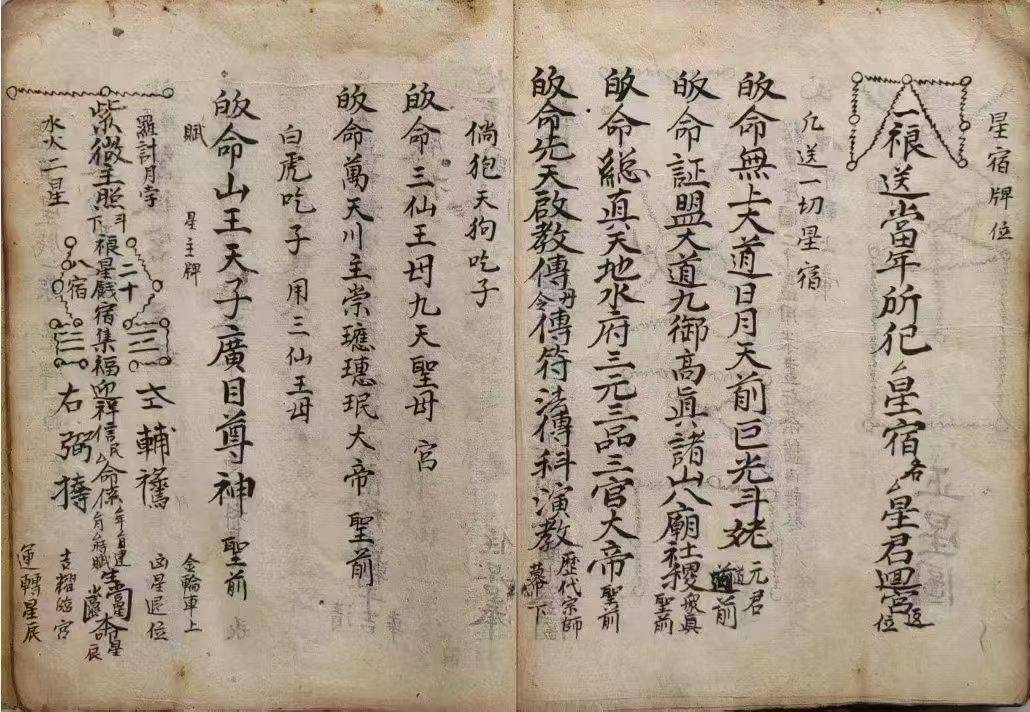 星宿牌位
一禳送當年所犯ㄙ星宿名ㄙ星君回宮返位
凡送一切星宿
皈命無上大道日月天前巨光斗姥元君道前
皈命証盟大道九御高真諸山八廟社稷衆真聖前
皈命總真天地水府三元三品三官大帝聖前
皈命先天啟教傳丹傳令傳符法傳科演教歷代宗師幕下
倘犯天狗吃子
皈命三仙王母九天聖母宮
皈命萬天川主崇應珉大帝聖前
白虎吃子 用三仙王母
皈命山王天子廣目尊神聖前
賦 星主牌
金輪車上
羅計月孛
二十
左輔
凶星退位
紫微主照斗下禳星戲宿集福迎祥信民ㄙ命係
八宿
右弼
吉耀臨宮
水火二星
運轉星辰